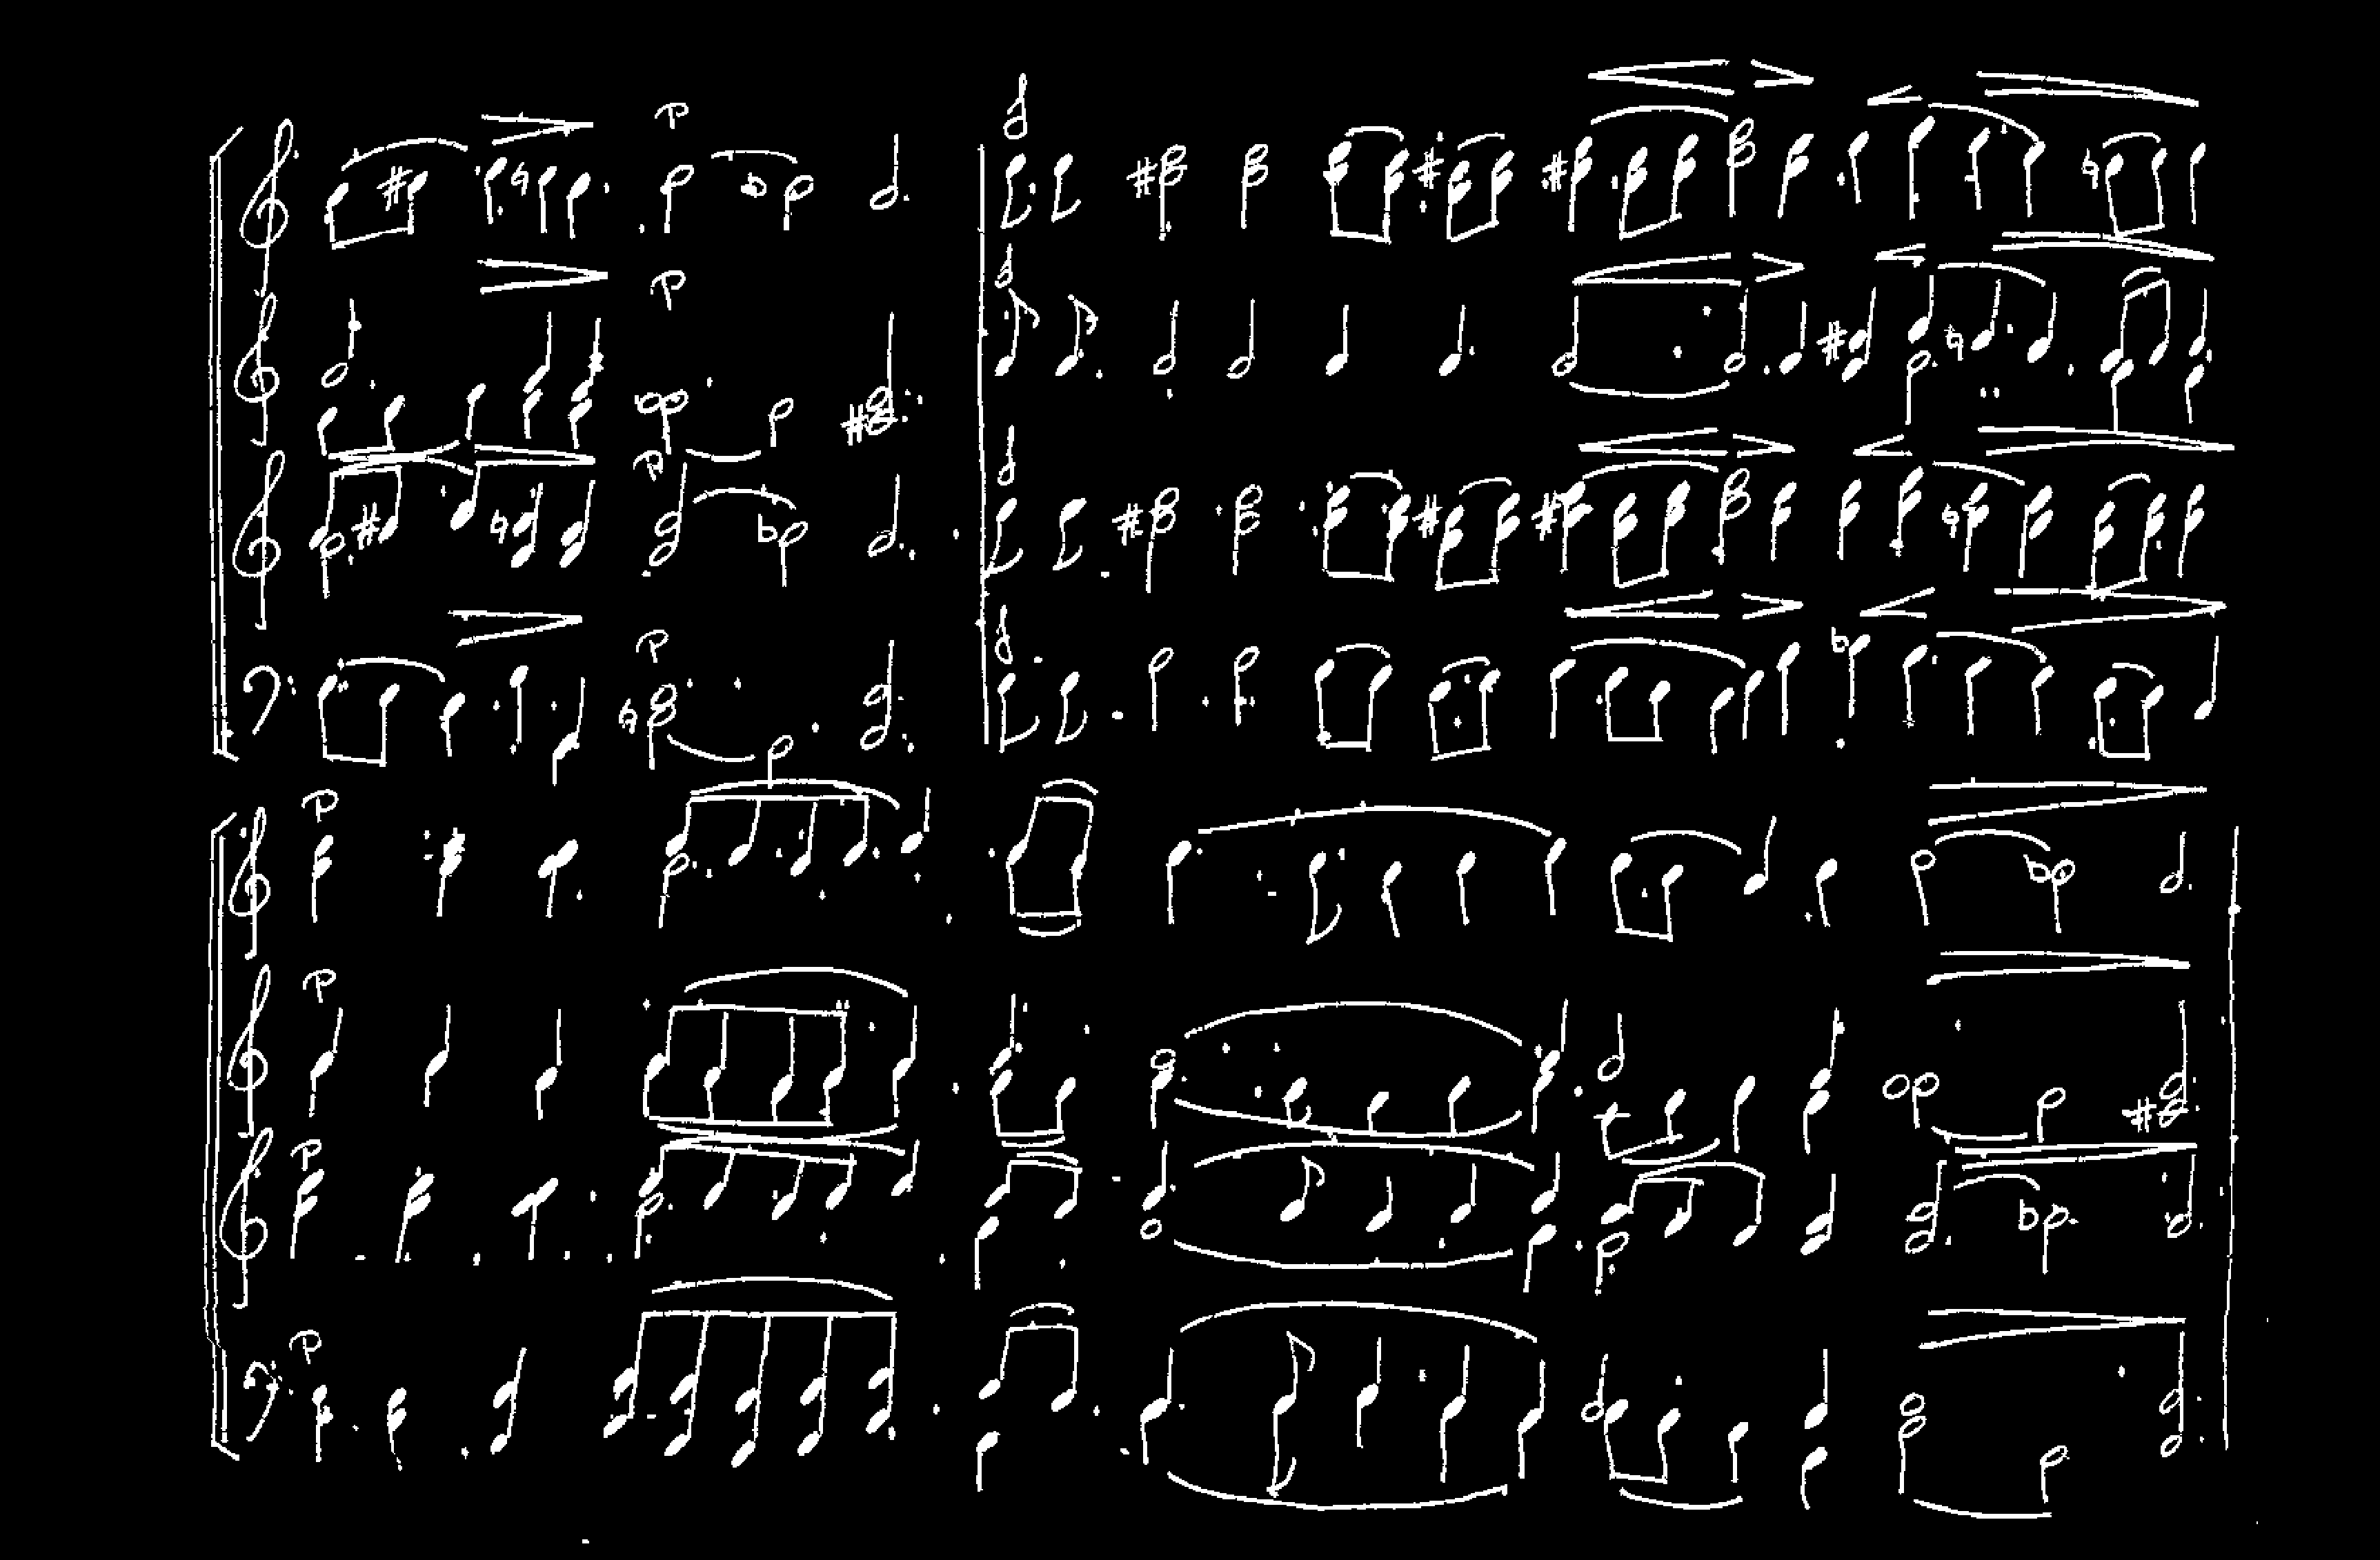 p
p
p
p
p
p
p
p